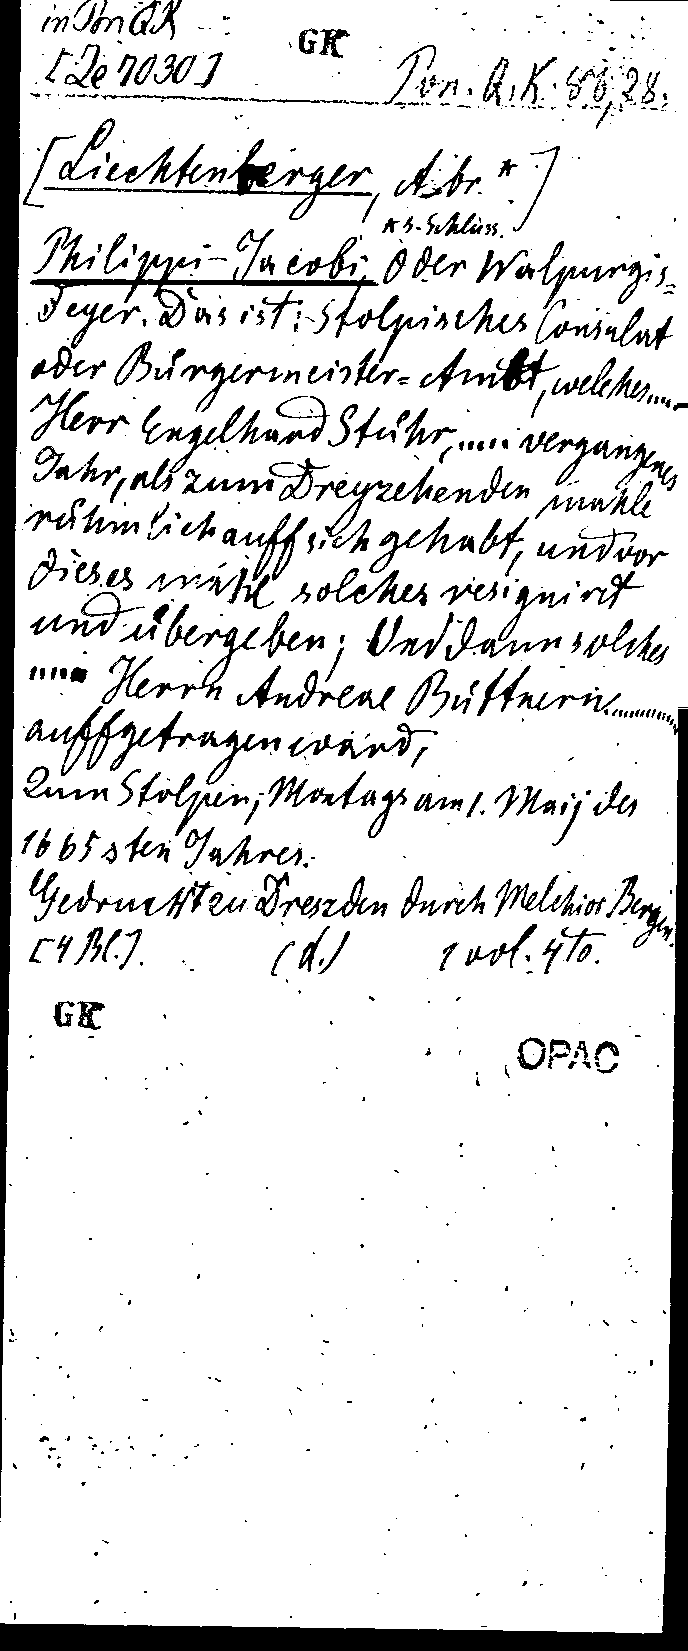 in Pon QK
GK
[Ze 7030]
Pon. Q. K. 86, 28.
[Liechtenberger, Abr.*]
* s. Schluss.
Philippi-Jacobi, oder Walpurgis-
Feyer. Das ist: Stolpisches Consulat
oder Bürgermeister-Ambt, welches....
Herr Engelhard Stühr, .... vergangenes
Jahr, als zum Dreyzehenden mahle
rühmlich auff sich gehabt, und vor
dieses mahl solches resignirt
und übergeben; Und dann solches
.... Herrn Andreae Büttnern........
auffgetragen ward,
Zum Stolpen, Montags am 1. Maij des
1665sten Jahres.
Gedruckt zu Dreszden durch Melchior Bergen.
[4 Bl.]. (d.) 1 vol. 4to.
GK
OPAC